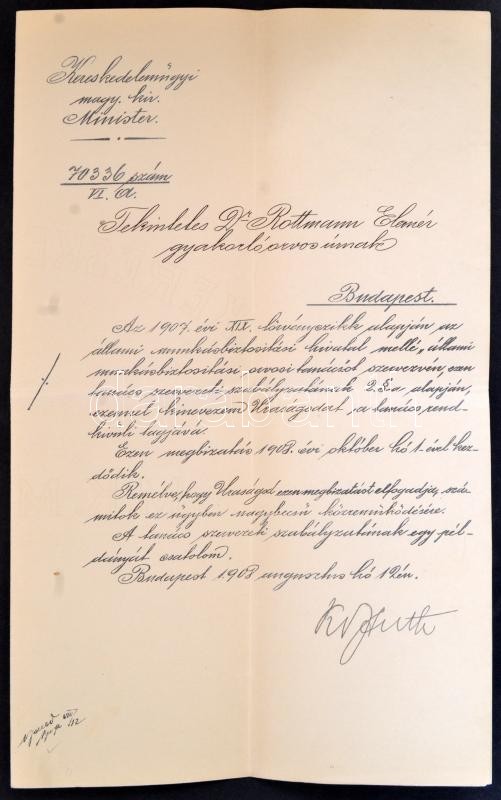 Kereskedelemügyi
magy. kir.
Minister.
70336 szám
VI. a.
Tekintetes Dr Rottmann Elemér
gyakorló orvos úrnak
Budapest.
Az 1907. évi XIX. törvényczikk alapján az
állami munkásbiztositási hivatal mellé, állami
munkásbiztositási, orvosi tanácsot szervezvén, ezen
tanács szervezeti szabályzatának 2. §-a alapján,
ezennel kinevezem Uraságodat a tanács rend-
kivüli tagjává.
Ezen megbizatás 1908. évi október hó 1-ével kez-
dődik.
Remélve, hogy Uraságod ezen megbizatást elfogadja, szá-
mitok ez ügyben nagybecsü közremüködésére.
A tanács szervezeti szabályzatának egy pél-
dányát csatolom.
Budapest 1908 augusztus hó 12én.
Kossuth
darabanth